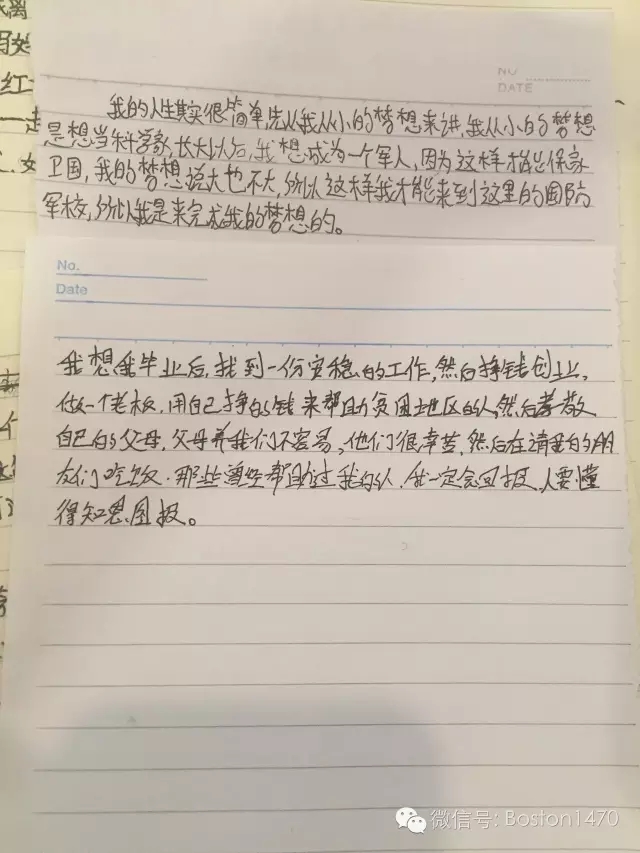 离
红
NO
DATE
我的人生其实很简单,先从我从小的梦想来讲,我从小的梦想
是想当科学家,长大以后,我想成为一个军人,因为这样才能保家
卫国,我的梦想说大也不大,所以这样我才能来到这里的国防
军校,所以我是来完成我的梦想的。
No.
Date
我想我毕业后,找到一份安稳的工作,然后挣钱创业,
做一个老板,用自己挣的钱来帮助贫困地区的人,然后孝敬
自己的父母,父母养我们不容易,他们很辛苦,然后在请我的朋
友们吃饭.那些曾经帮助过我的人,我一定会回报,人要懂
得知恩图报。
微信号: Boston1470